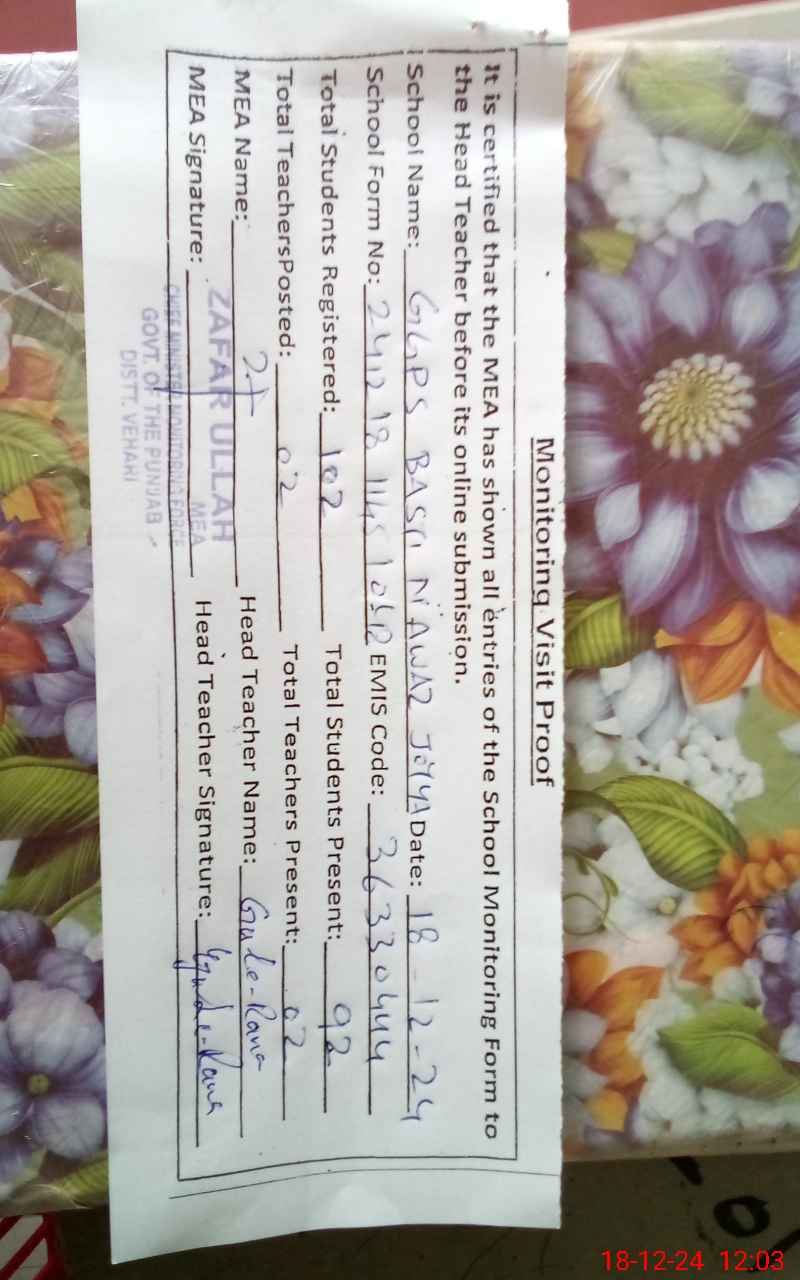 Monitoring Visit Proof
It is certified that the MEA has shown all entries of the School Monitoring Form to
the Head Teacher before its online submission.
School Name: GGPS BASTI NAWAZ JOYYA Date: 18-12-24
School Form No: EMIS Code: 36330444
Total Students Registered: 102 Total Students Present: 92
Total TeachersPosted: 02 Total Teachers Present: 02
MEA Name: Head Teacher Name:
MEA Signature: Head Teacher Signature:
ZAFAR ULLAH
MEA
CHIEF MINISTER MONITORING FORCE
GOVT. OF THE PUNJAB
DISTT. VEHARI
18-12-24 12:03